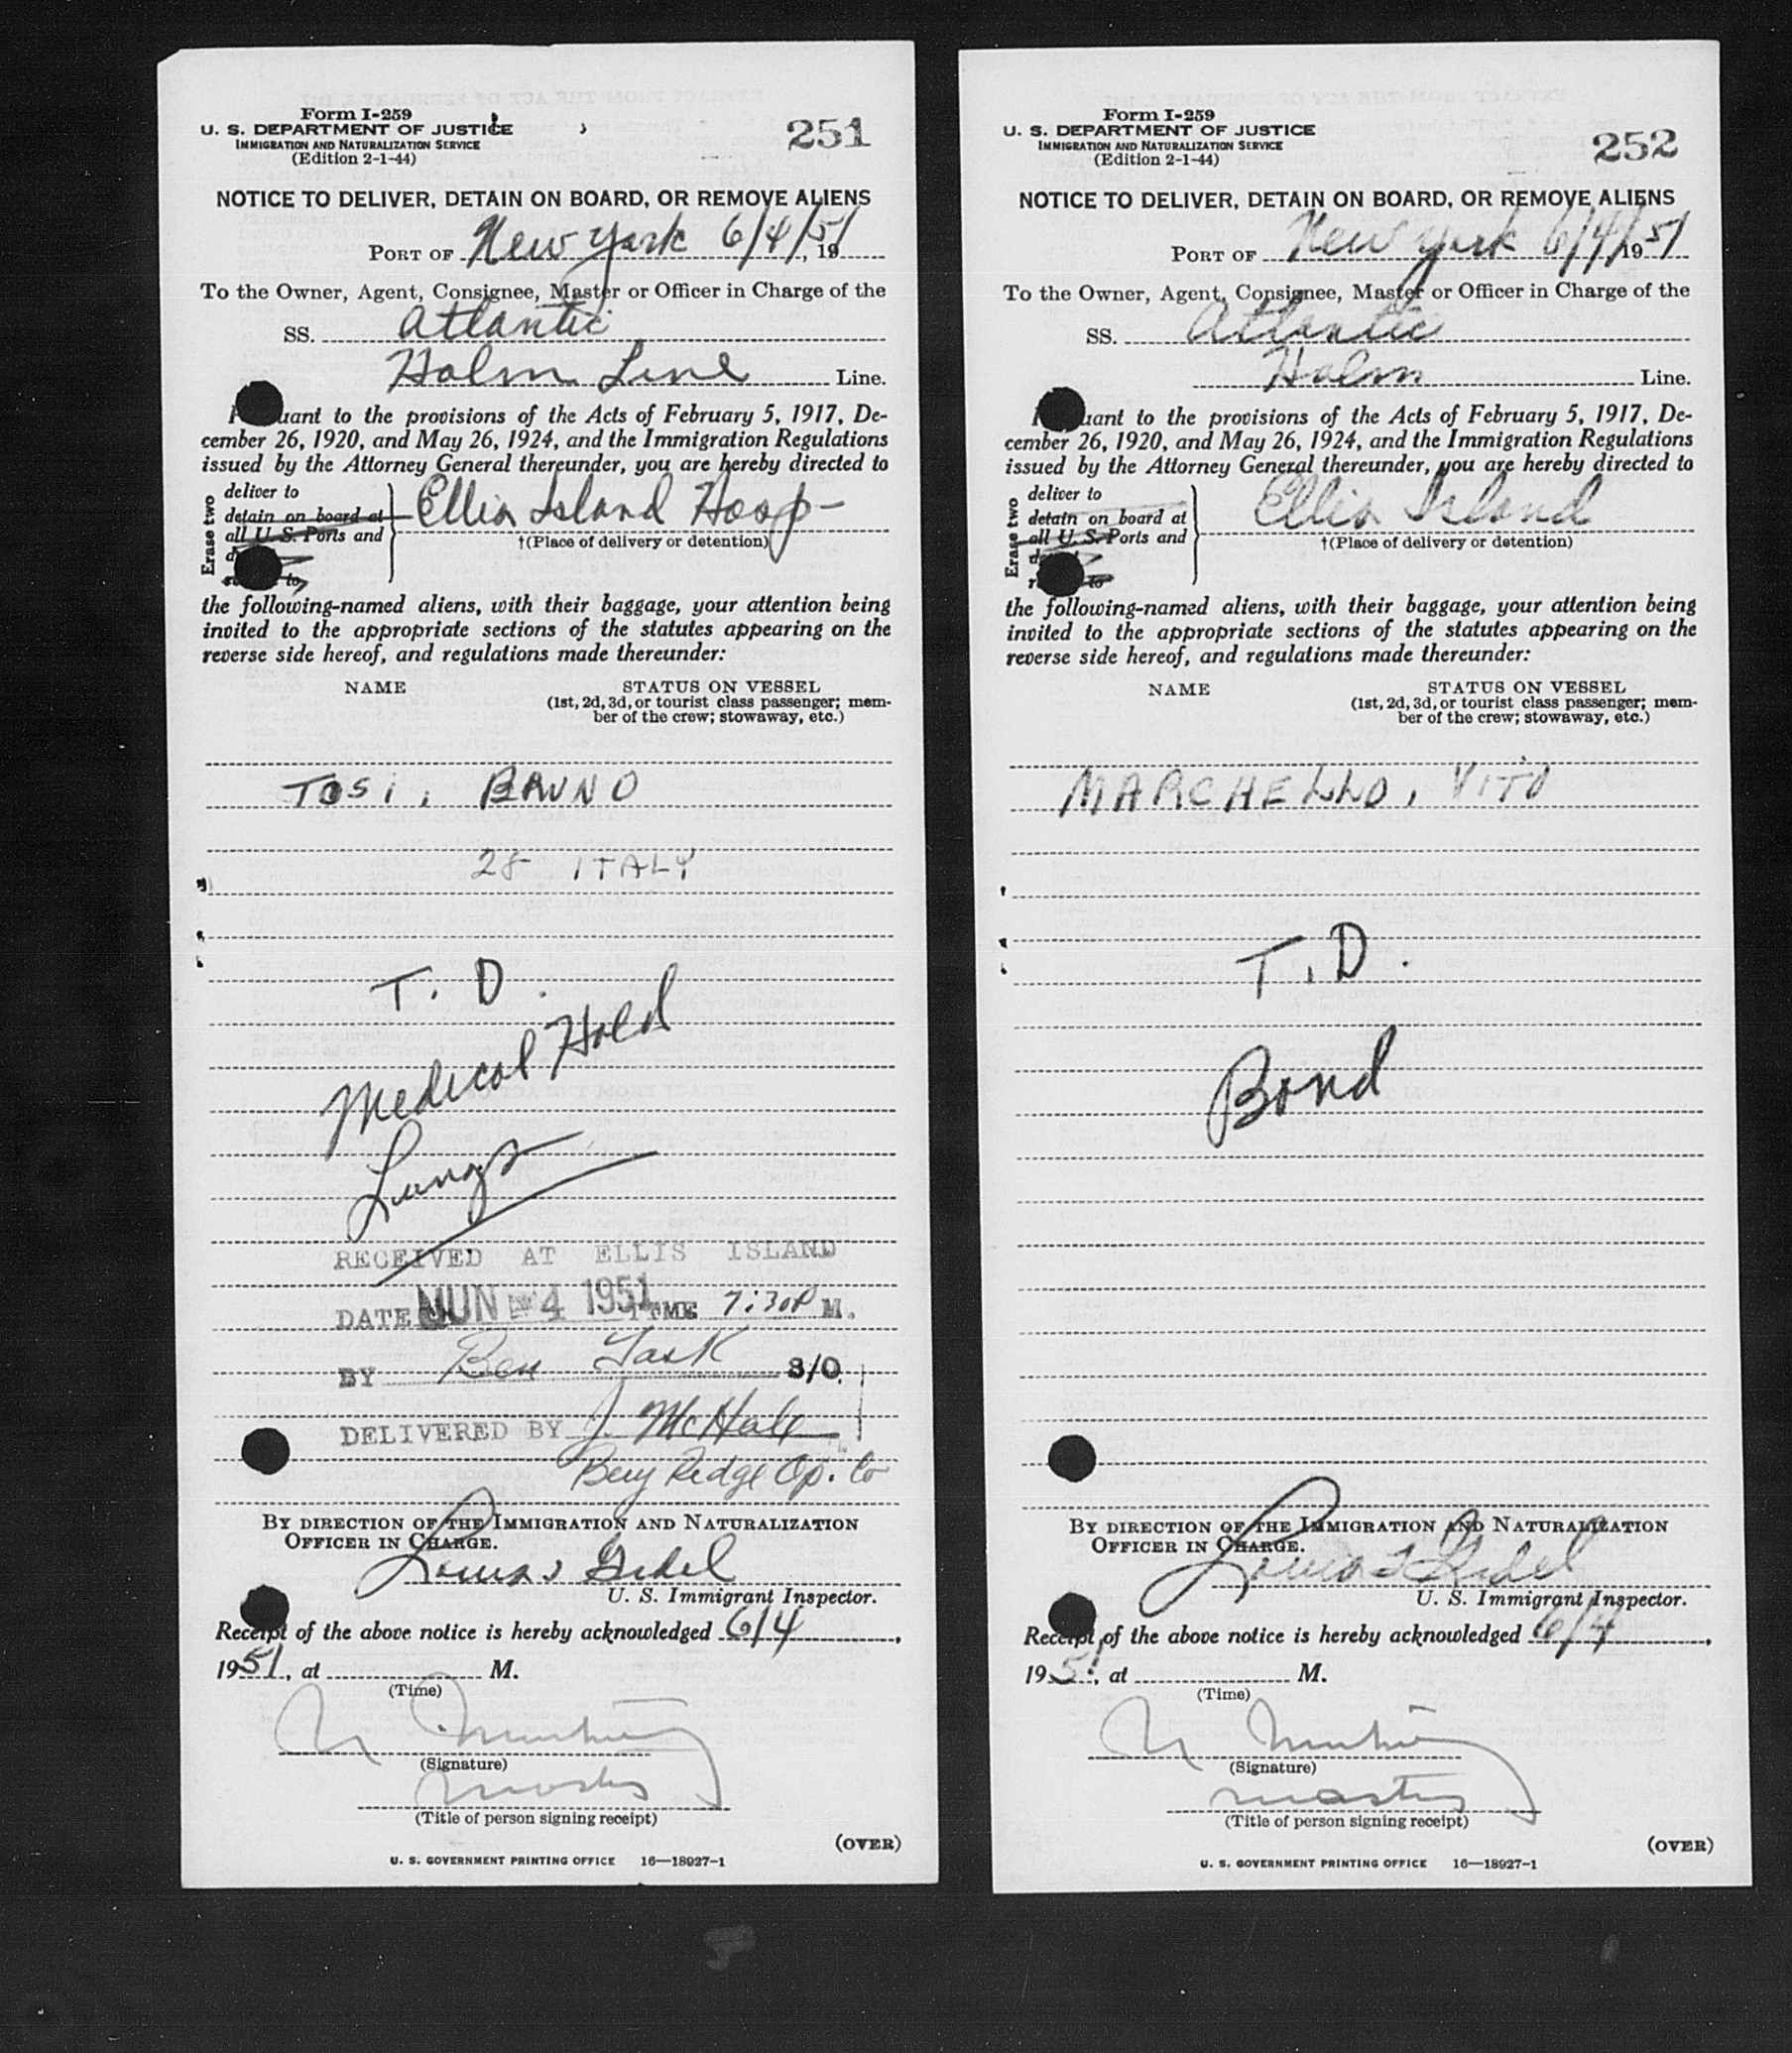 Form I-259
U. S. DEPARTMENT OF JUSTICE
IMMIGRATION AND NATURALIZATION SERVICE
(Edition 2-1-44)
251
NOTICE TO DELIVER, DETAIN ON BOARD, OR REMOVE ALIENS
PORT OF New York 6/4/51, 19
To the Owner, Agent, Consignee, Master or Officer in Charge of the
SS. Atlantic
Holm Line Line.
uant to the provisions of the Acts of February 5, 1917, De-
cember 26, 1920, and May 26, 1924, and the Immigration Regulations
issued by the Attorney General thereunder, you are hereby directed to
Erase two
deliver to
detain on board at
all U. S. Ports and
to
Ellis Island Hosp-
†(Place of delivery or detention)
the following-named aliens, with their baggage, your attention being
invited to the appropriate sections of the statutes appearing on the
reverse side hereof, and regulations made thereunder:
NAME
STATUS ON VESSEL
(1st, 2d, 3d, or tourist class passenger; mem-
ber of the crew; stowaway, etc.)
TOSI, BRUNO
28 ITALY
T. D.
Medical Hold
Lungs
RECEIVED AT ELLIS ISLAND
DATE JUN 4 1951 TIME 7:30 P M.
BY Ben Task S/O
DELIVERED BY J. McHale
Bay Ridge Op. Co
BY DIRECTION OF THE IMMIGRATION AND NATURALIZATION
OFFICER IN CHARGE.
Louis Gidel
U. S. Immigrant Inspector.
Receipt of the above notice is hereby acknowledged 6/4,
1951, at M.
(Time)
(Signature)
Master
(Title of person signing receipt)
(OVER)
U. S. GOVERNMENT PRINTING OFFICE 16—18927-1
Form I-259
U. S. DEPARTMENT OF JUSTICE
IMMIGRATION AND NATURALIZATION SERVICE
(Edition 2-1-44)
252
NOTICE TO DELIVER, DETAIN ON BOARD, OR REMOVE ALIENS
PORT OF New York 6/4/1951
To the Owner, Agent, Consignee, Master or Officer in Charge of the
SS. Atlantic
Holm Line.
uant to the provisions of the Acts of February 5, 1917, De-
cember 26, 1920, and May 26, 1924, and the Immigration Regulations
issued by the Attorney General thereunder, you are hereby directed to
Erase two
deliver to
detain on board at
all U. S. Ports and
to
Ellis Island
†(Place of delivery or detention)
the following-named aliens, with their baggage, your attention being
invited to the appropriate sections of the statutes appearing on the
reverse side hereof, and regulations made thereunder:
NAME
STATUS ON VESSEL
(1st, 2d, 3d, or tourist class passenger; mem-
ber of the crew; stowaway, etc.)
MARCHELLO, VITO
T. D.
Bond
BY DIRECTION OF THE IMMIGRATION AND NATURALIZATION
OFFICER IN CHARGE.
Louis Gidel
U. S. Immigrant Inspector.
Receipt of the above notice is hereby acknowledged 6/4,
1951, at M.
(Time)
(Signature)
Master
(Title of person signing receipt)
(OVER)
U. S. GOVERNMENT PRINTING OFFICE 16—18927-1